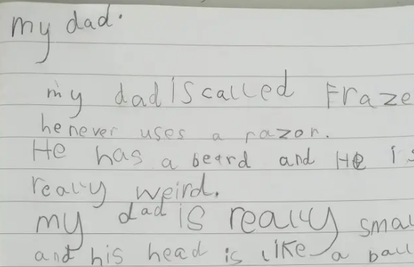 my dad.
my dad is called Fraze
he never uses a razor.
He has a beard and He is
really weird.
my dad is really smal
and his head is like a ball